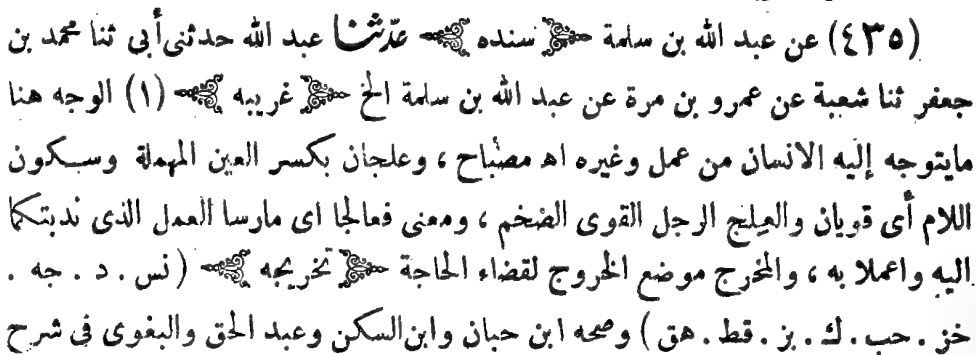 (٤٣٥) عن عبد الله بن سلمة ﴿سنده﴾ حدّثنا عبد الله حدثنى أبي ثنا محمد بن
جعفر ثنا شعبة عن عمرو بن مرة عن عبد الله بن سلمة الخ ﴿غريبه﴾ (١) الوجه هنا
مايتوجه إليه الانسان من عمل وغيره اه مصباح ، وعلجان بكسر العين المهملة وسكون
اللام أى قويان والعِلج الرجل القوى الضخم ، ومعنى فعالجا اى مارسا العمل الذى ندبتكما
اليه واعملا به ، والمخرج موضع الخروج لقضاء الحاجة ﴿تخريجه﴾ (نس . د . جه .
خز . حب . ك . بز . قط . هق) وصححه ابن حبان وابن السكن وعبد الحق والبغوى فى شرح